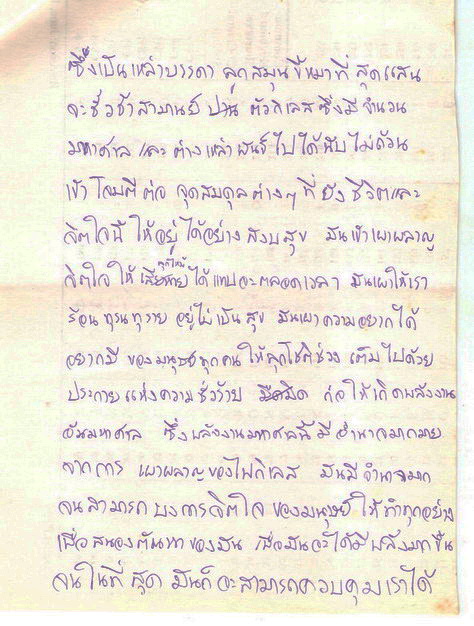 ซึ่งเป็นเหล่าบรรดา ลูกสมุนขี้หมาที่ สุดแสน
จะชั่วช้าสามานย์ ปาน ตัวกิเลส ซึ่งมีจำนวน
มหาศาล และ ต่างเหล่าพันธ์ไปได้นับไม่ถ้วน
เข้าโจมตีต่อ จุดสมดุลต่างๆ ที่ยังชีวิตและ
จิตใจนี้ ให้อยู่ได้อย่าง สงบสุข มันเข้าเผาผลาญ
จิตใจ ให้ ลุกไหม้ ได้แทบจะตลอดเวลา มันเผาให้เรา
ร้อนทุรนทุราย อยู่ไม่เป็นสุข มันเผาความอยากได้
อยากมี ของมนุษย์ทุกคน ให้ลุกโชติช่วง เต็มไปด้วย
ประกายแห่งความชั่วร้าย มืดมิด ก่อให้เกิดพลังงาน
อันมหาศาล ซึ่งพลังงานมหาศาลนี้ มีอำนาจมากมาย
จากการ เผาผลาญของไฟกิเลส มันมีอำนาจมาก
จนสามารถ บงการจิตใจ ของมนุษย์ ให้ทำทุกอย่าง
เพื่อสนองตัณหาของมัน เพื่อมันจะได้มีพลังมากขึ้น
จนในที่สุด มันก็จะสามารถควบคุมเราได้